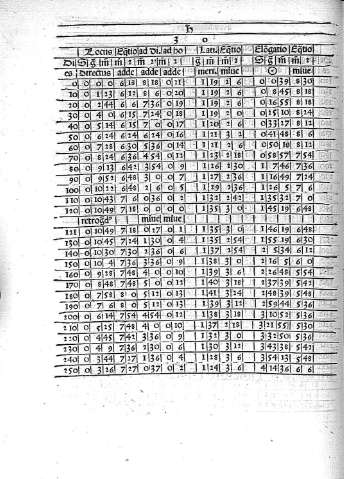 ♄
3 0
Locus Eq̃tio ad di. ad ho Lati. Eq̃tio Elõgatio Eq̃tio
Di S g̃ m̃ m̃ 2 m̃ 2 m̃ 2 g̃ m̃ m̃ 2 S g̃ m̃ m̃ 2
es directus adde adde adde meri. miue ☉ miue
0 0 0 0 6 12 8 18 0 21 1 19 2 6 0 0 39 8 30
10 0 1 23 6 12 8 6 0 20 1 19 2 6 0 8 45 8 18
20 0 2 44 6 6 7 36 0 19 1 19 2 6 0 16 55 8 18
30 0 4 0 6 15 7 24 0 18 1 19 2 0 0 15 10 8 24
40 0 5 14 6 15 7 0 0 17 1 20 2 6 0 33 27 8 12
50 0 6 24 6 24 6 24 0 16 1 21 3 2 0 41 48 8 6
60 0 7 28 6 30 5 36 0 14 1 21 2 6 0 50 10 8 12
70 0 8 24 6 36 4 54 0 12 1 23 2 18 0 58 57 7 54
80 0 9 13 6 42 3 54 0 9 1 26 2 30 1 7 46 7 36
90 0 9 52 6 48 3 0 0 7 1 27 2 36 1 16 49 7 24
100 0 10 22 6 48 2 6 0 5 1 29 2 36 1 26 5 7 6
110 0 10 43 7 6 0 36 0 2 1 32 2 42 1 35 32 7 0
120 0 10 49 7 18 0 0 0 0 1 35 3 0 1 45 39 6 48
retrogad⁹ miue miue
131 0 10 49 7 18 0 27 0 1 1 35 3 0 1 46 19 6 48
130 0 10 45 7 24 1 30 0 4 1 35 2 54 1 55 19 6 30
140 0 10 30 7 30 2 36 0 6 1 37 2 54 2 5 34 6 12
150 0 10 4 7 36 3 36 0 9 1 38 3 0 2 16 5 6 0
160 0 9 28 7 48 4 0 0 10 1 39 3 6 2 26 48 5 54
170 0 8 48 7 48 5 0 0 12 1 40 3 18 2 37 39 5 42
180 0 7 58 8 0 5 12 0 13 1 41 3 24 2 48 39 5 48
190 0 7 6 8 0 5 12 0 13 1 39 3 12 2 59 44 5 36
200 0 6 14 7 54 4 54 0 12 1 38 3 18 3 10 52 5 36
210 0 5 25 7 48 4 0 0 10 1 37 2 18 3 21 55 5 30
220 0 4 45 7 42 3 36 0 9 1 32 3 0 3 32 50 5 36
230 0 4 9 7 36 2 30 0 6 1 30 3 12 3 43 38 5 42
240 0 3 44 7 27 1 36 0 4 1 28 3 6 3 54 13 5 48
250 0 3 26 7 27 0 37 0 2 1 24 3 6 4 14 36 6 6